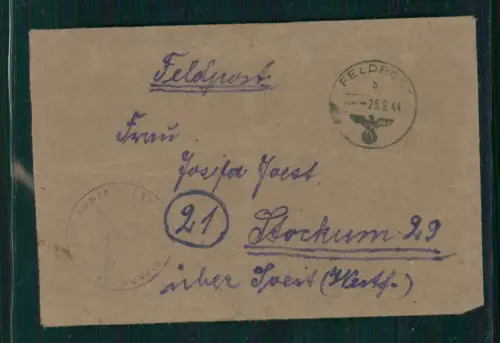 Feldpost
FELDPOST
b
25.9.44
Frau
Josefa Joest
21
Stockum 29
über Soest (Westf.)